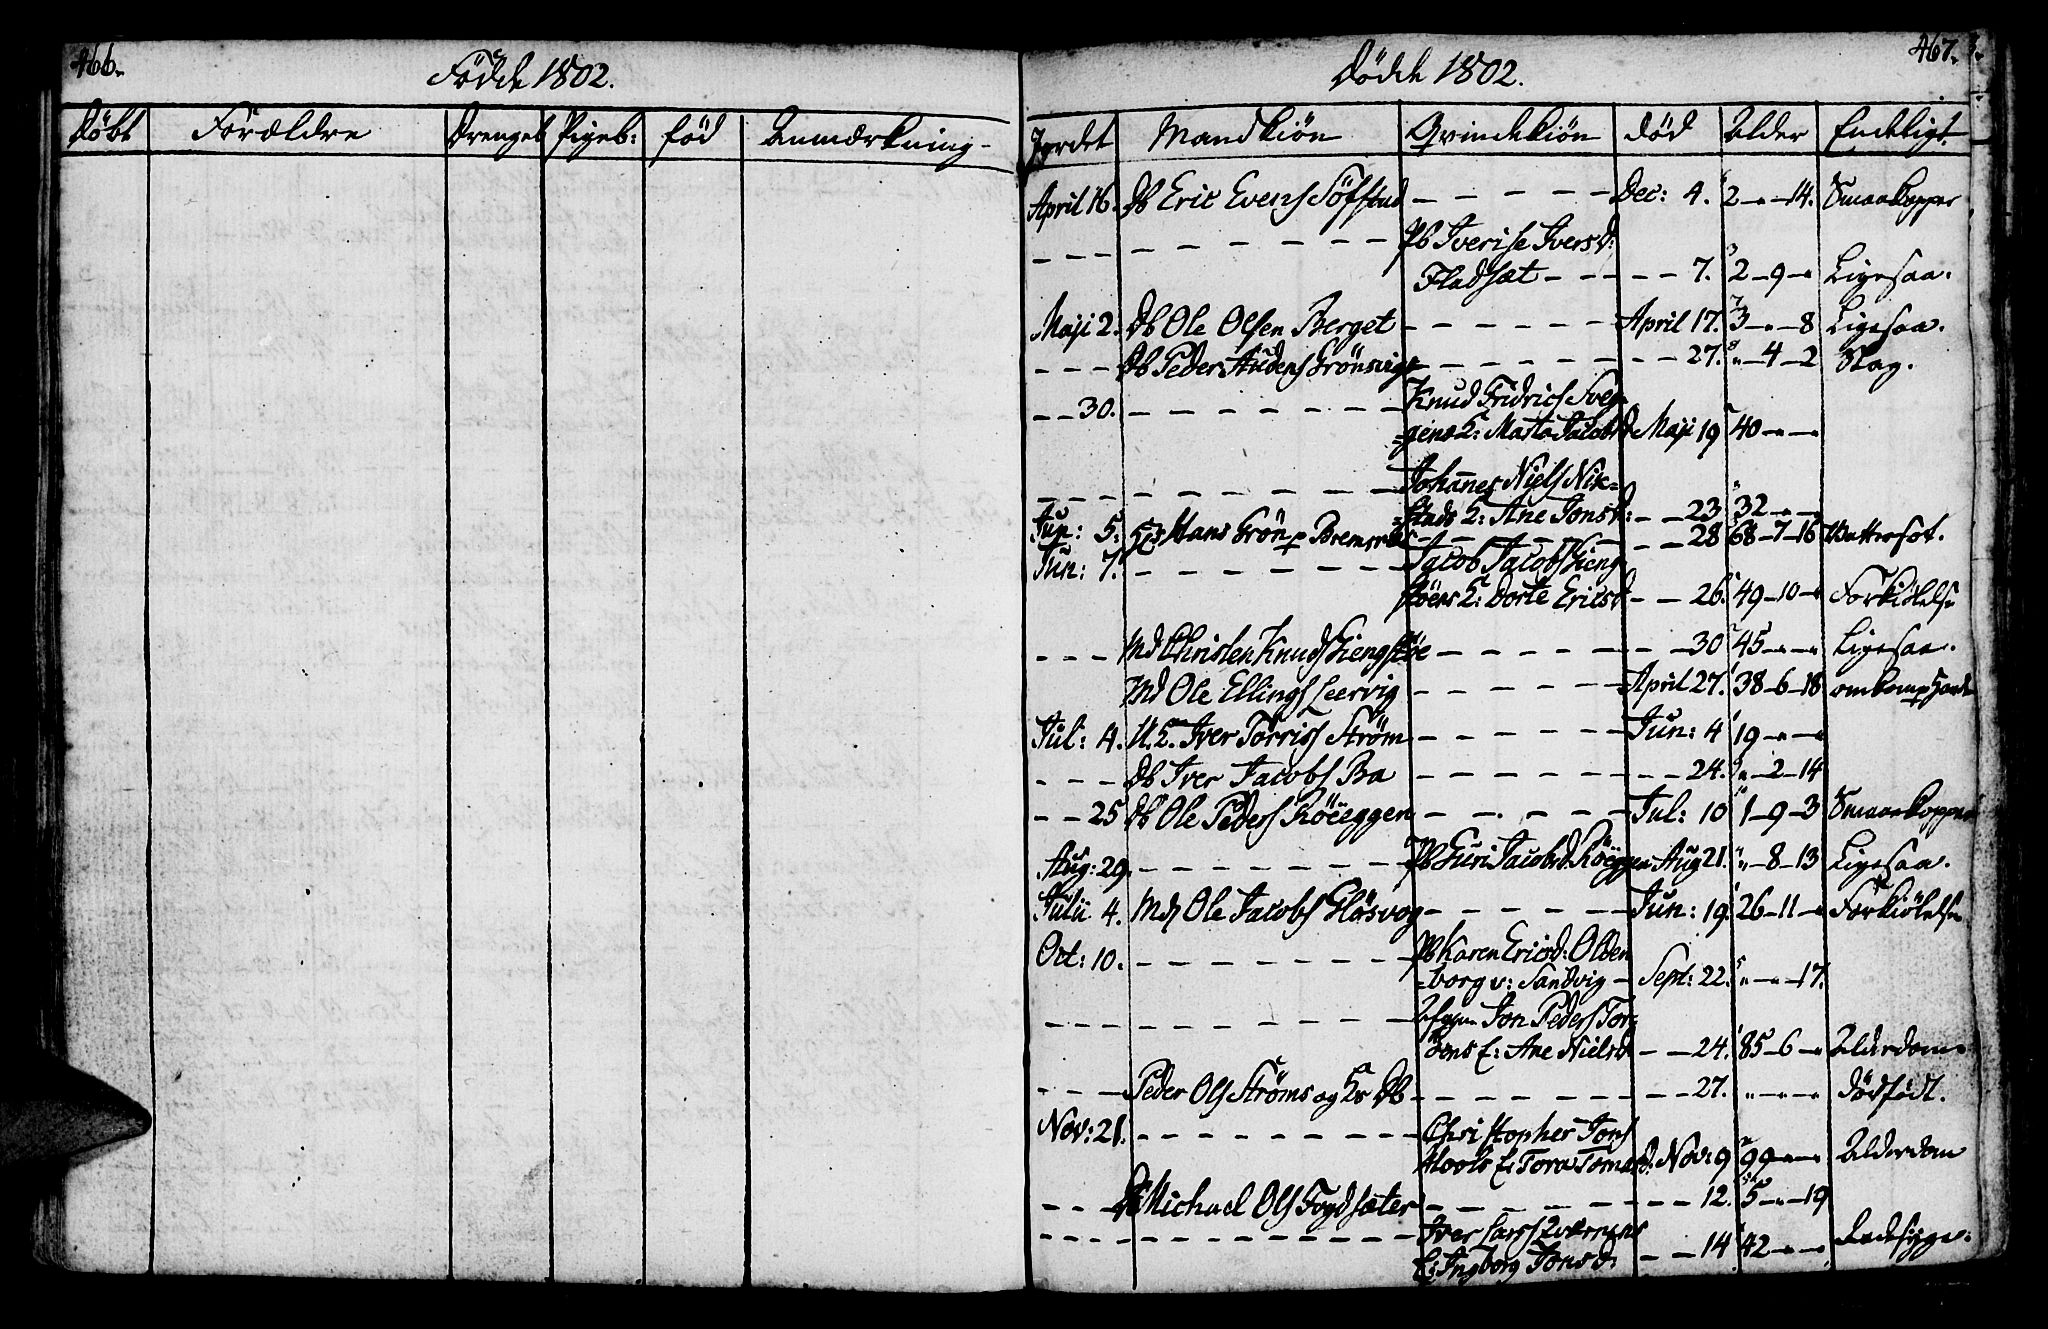 466.
Födde 1802.
Döbt Forældre Drengeb Pigeb: föd Anmærkning
467.
Dödde 1802.
Jordet Mandkiön Qvindekiön död Alder Endeligt.
April 16. Db Eric Evens Söfstad – – – – – Dec: 4. 2 – „ – 14. Smaakopper
– – – – – – – – – Pb Iverise Iversd:
Fladsæt – – – – – 7. 2 – 9 – „ Ligesaa.
Maji 2. Db Ole Olsen Berget – – – – – – April 17. 3 – „ – 8 Ligesaa.
– – – Db Peder Audens Grönsvig – – – – – – – – 27. „ – 4 – 2 Slag.
– – 30. – – – – – – – Knud Fridrics Sveg
=gens E: Marta Jacobsd Maji 19 40 – „ – „
– – – – – – – – – – Johanes Niels Nik=
=stads E: Ane Jonsd: – – 23 32 – „ – „
Jun: 5. Hans Grön Bremsnes – – – – – – – 28 68 – 7 – 16 Wattersot.
Jun: 7. – – – – – – – Jacob Jacobs Gieng
stöens E: Dorte Ericsd – – 26. 49 – 10 – „ Forkiölelse
– – – Md Christen Knuds Giengstöe – – – – – – – 30 45 – „ – „ Ligesaa.
Md Ole Ellings Leervig – – – – – – April 27. 38 – 6 – 18
Jul: 4. U. E. Iver Torris Ström – – – – – – Jun: 4 19 – „ – „
– – – Db Iver Jacobs Ba – – – – – – – – 24. „ – 2 – 14
– – 25 Db Ole Peders Röeggen – – – – – Jul: 10 1 – 9 – 3 Smaakopper
Aug: 29. – – – – – – – Pb Guri Jacobsd Röeggen Aug 21. „ – 8 – 13 Ligesaa.
Julii 4. Md Ole Jacobs Glösvog – – – – – – Jun: 19. 26 – 11 – „ Forkiölelse
Oct: 10. – – – – – – – Pb Karen Ericsd: Olden
=borg v: Sandvig – Sept: 22. „ – „ – 17.
– – – – – – – – – – Afggm Jon Peders Tor=
dens E: Ane Nielsd – – 24. 85 – 6 – „ Alderdom
– – – Peder Ols Ströms og Db – – – – – – – – 27. „ – „ – „ dödfödt.
Nov: 21. – – – – – – – Christopher Jons
E: Tora Tomasd: Nov: 9 99 – „ – „ Alderdom
– – – Db Michael Ols Fogdsæter – – – – – – – – 12. 5 – „ – 19
– – – – – – – – – – Iver Lars
E: Ingborg Jonsd: – – 14 42 – „ – „